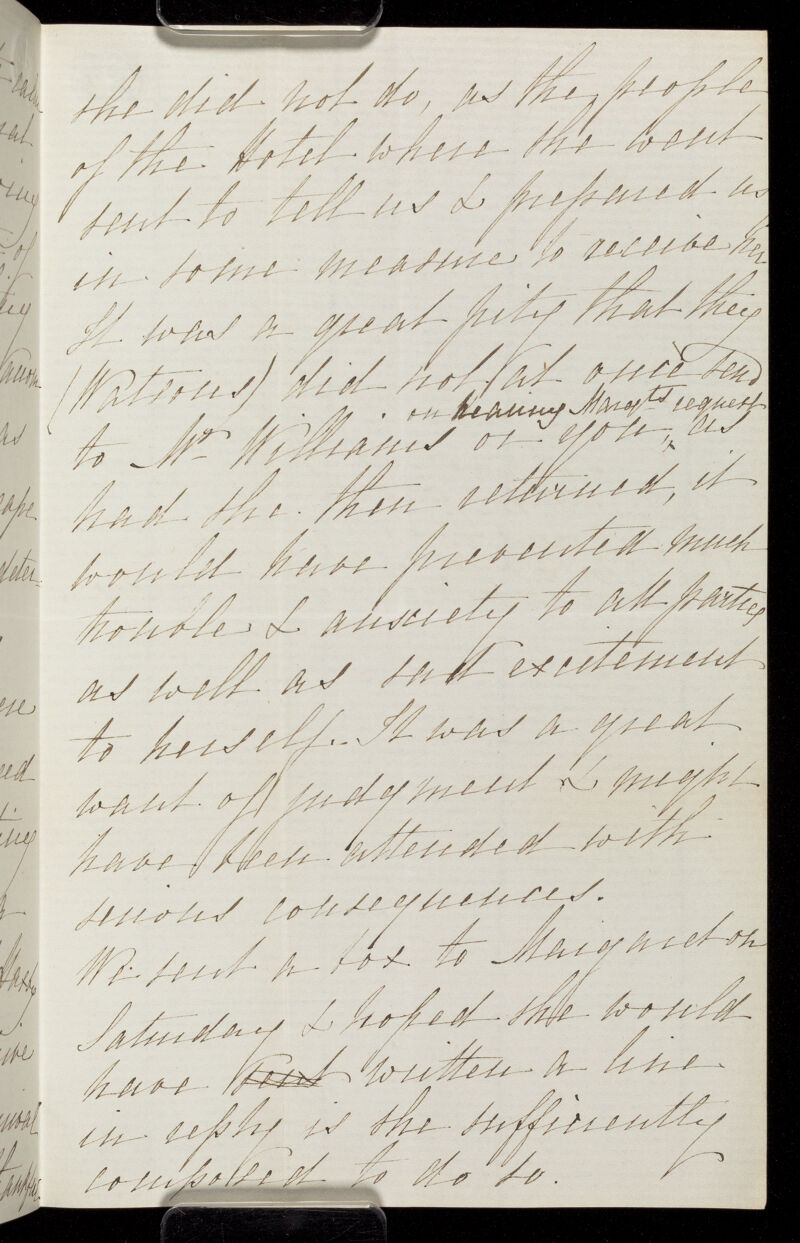 she did not do, as the people
of the Hotel where she went
sent to tell us & prepared us
in some measure to receive her
It was a great pity that they
(Watsons) did not at once send
on hearing Margts request
to Mr Williams or you, as
had she then returned, it
would have prevented much
trouble & anxiety to all parties
as well as sad excitement
to herself. It was a great
want of judgment & might
have been attended with
serious consequences.
We sent a box to Margaret on
Saturday & hoped she would
have sent written a line
in reply is she sufficiently
composed to do so.